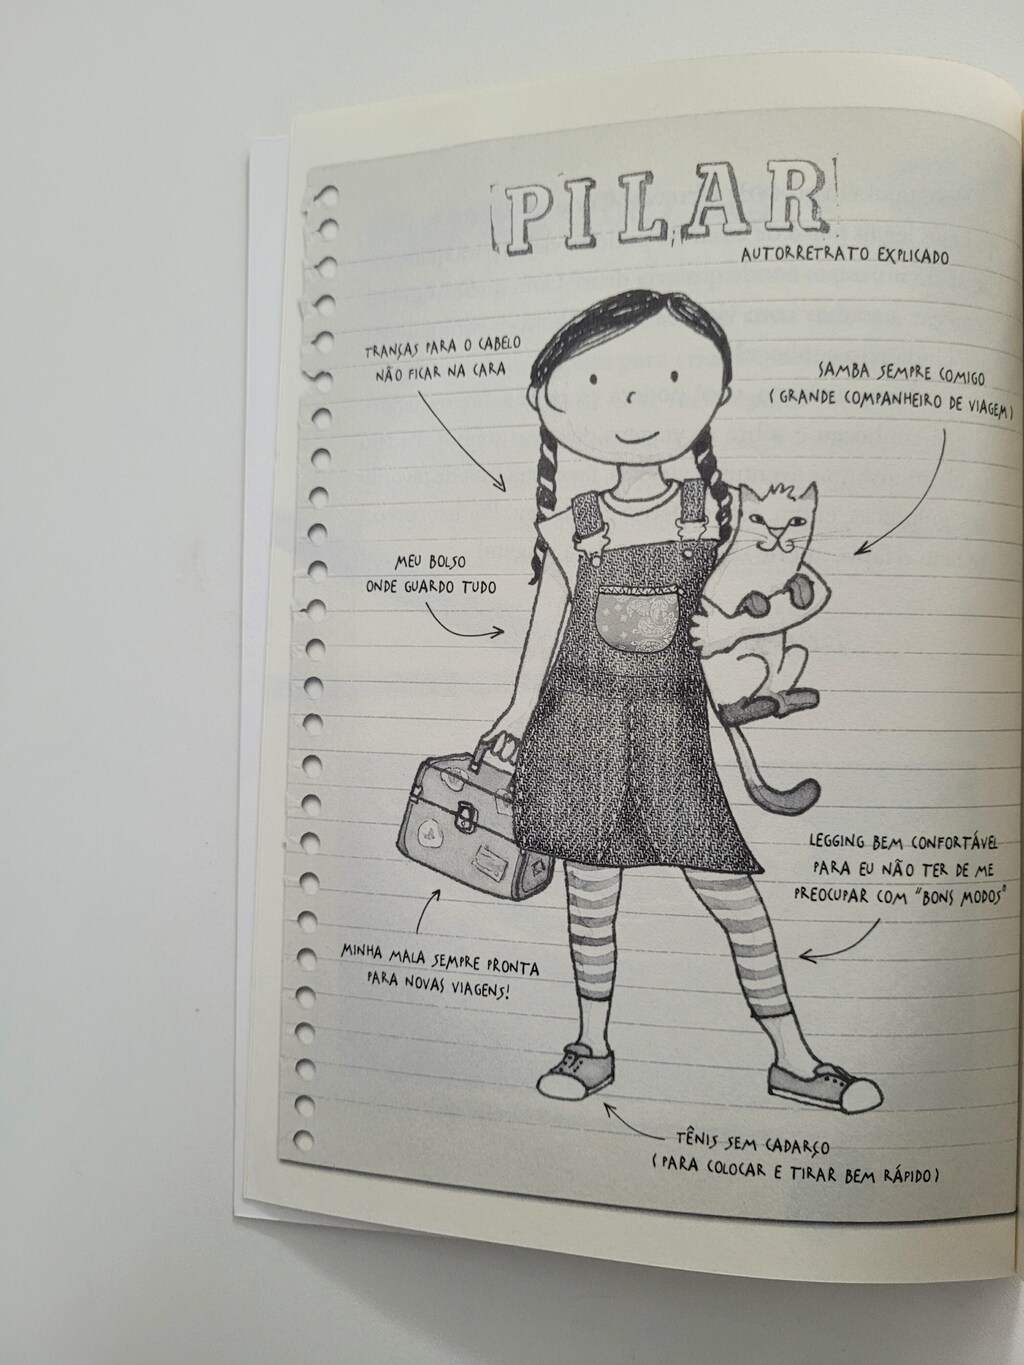 PILAR
AUTORRETRATO EXPLICADO
TRANÇAS PARA O CABELO
NÃO FICAR NA CARA
SAMBA SEMPRE COMIGO
(GRANDE COMPANHEIRO DE VIAGEM)
MEU BOLSO
ONDE GUARDO TUDO
LEGGING BEM CONFORTÁVEL
PARA EU NÃO TER DE ME
PREOCUPAR COM "BONS MODOS"
MINHA MALA SEMPRE PRONTA
PARA NOVAS VIAGENS!
TÊNIS SEM CADARÇO
(PARA COLOCAR E TIRAR BEM RÁPIDO)